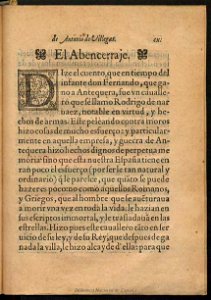 de Antonio de Villegas. cx.
El Abencerraje.
Dize el cuento, que en tiempo del
infante don Fernando, que ga
no a Antequera, fue vn caualle
ro que se llamo Rodrigo de nar
uaez, notable en virtud, y he
chos de armas. Este peleando contra moros
hizo cosas de mucho esfuerço, y particular
mente en aquella empresa, y guerra de An-
tequera hizo hechos dignos de perpetua me
moria: sino que esta nuestra España tiene en
tan poco el esfuerço (por serle tan natural y
ordinario) que le parece, que quãto se puede
hazer es poco: no como aquellos Romanos,
y Griegos, que al hombre que se auẽturaua
a morir vna vez en toda la vida, le hazian en
sus escriptos immortal, y le trasladauã en las
estrellas. Hizo pues este cauallero tãto en ser
uicio de su ley, y de su Rey, que despues de ga
nada la villa, le hizo alcayde della: para que